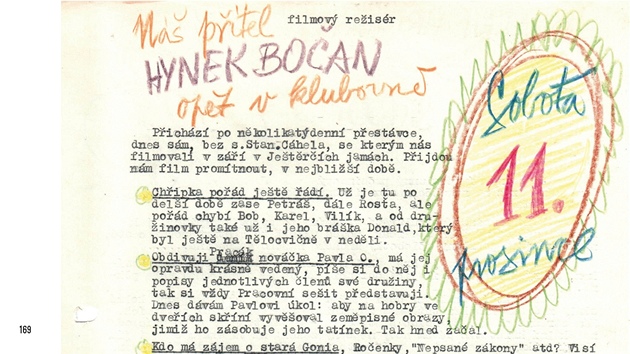 Náš přítel
filmový režisér
HYNEK BOČAN
opět v klubovně
Sobota
11.
prosince
Přichází po několikatýdenní přestávce,
dnes sám, bez s.Stan.Cáhela, se kterým nás
filmovali v září v Ještěrčích jamách. Přijdou
nám film promítnout, v nejbližší době.
Chřipka pořád ještě řádí. Už je tu po
delší době zase Petráš, dále Rosta, ale
pořád chybí Bob, Karel, Vilík, a od dru-
žinovky také už i jeho bráška Donald,který
byl ještě na Tělocvičně v neděli.
Pracák
Obdivuji deník nováčka Pavla O., má jej
opravdu krásně vedený, píše si do něj i
popisy jednotlivých členů své družiny,
tak si vždy Pracovní sešit představuji.
Dnes dávám Pavlovi úkol: aby na hobry ve
dveřích skříní vyvěšoval zeměpisné obrazy,
jimiž ho zásobuje jeho tatínek. Tak hned začal.
Kdo má zájem o stará Gonia, Ročenky,"Nepsané zákony" atd? Visí
169